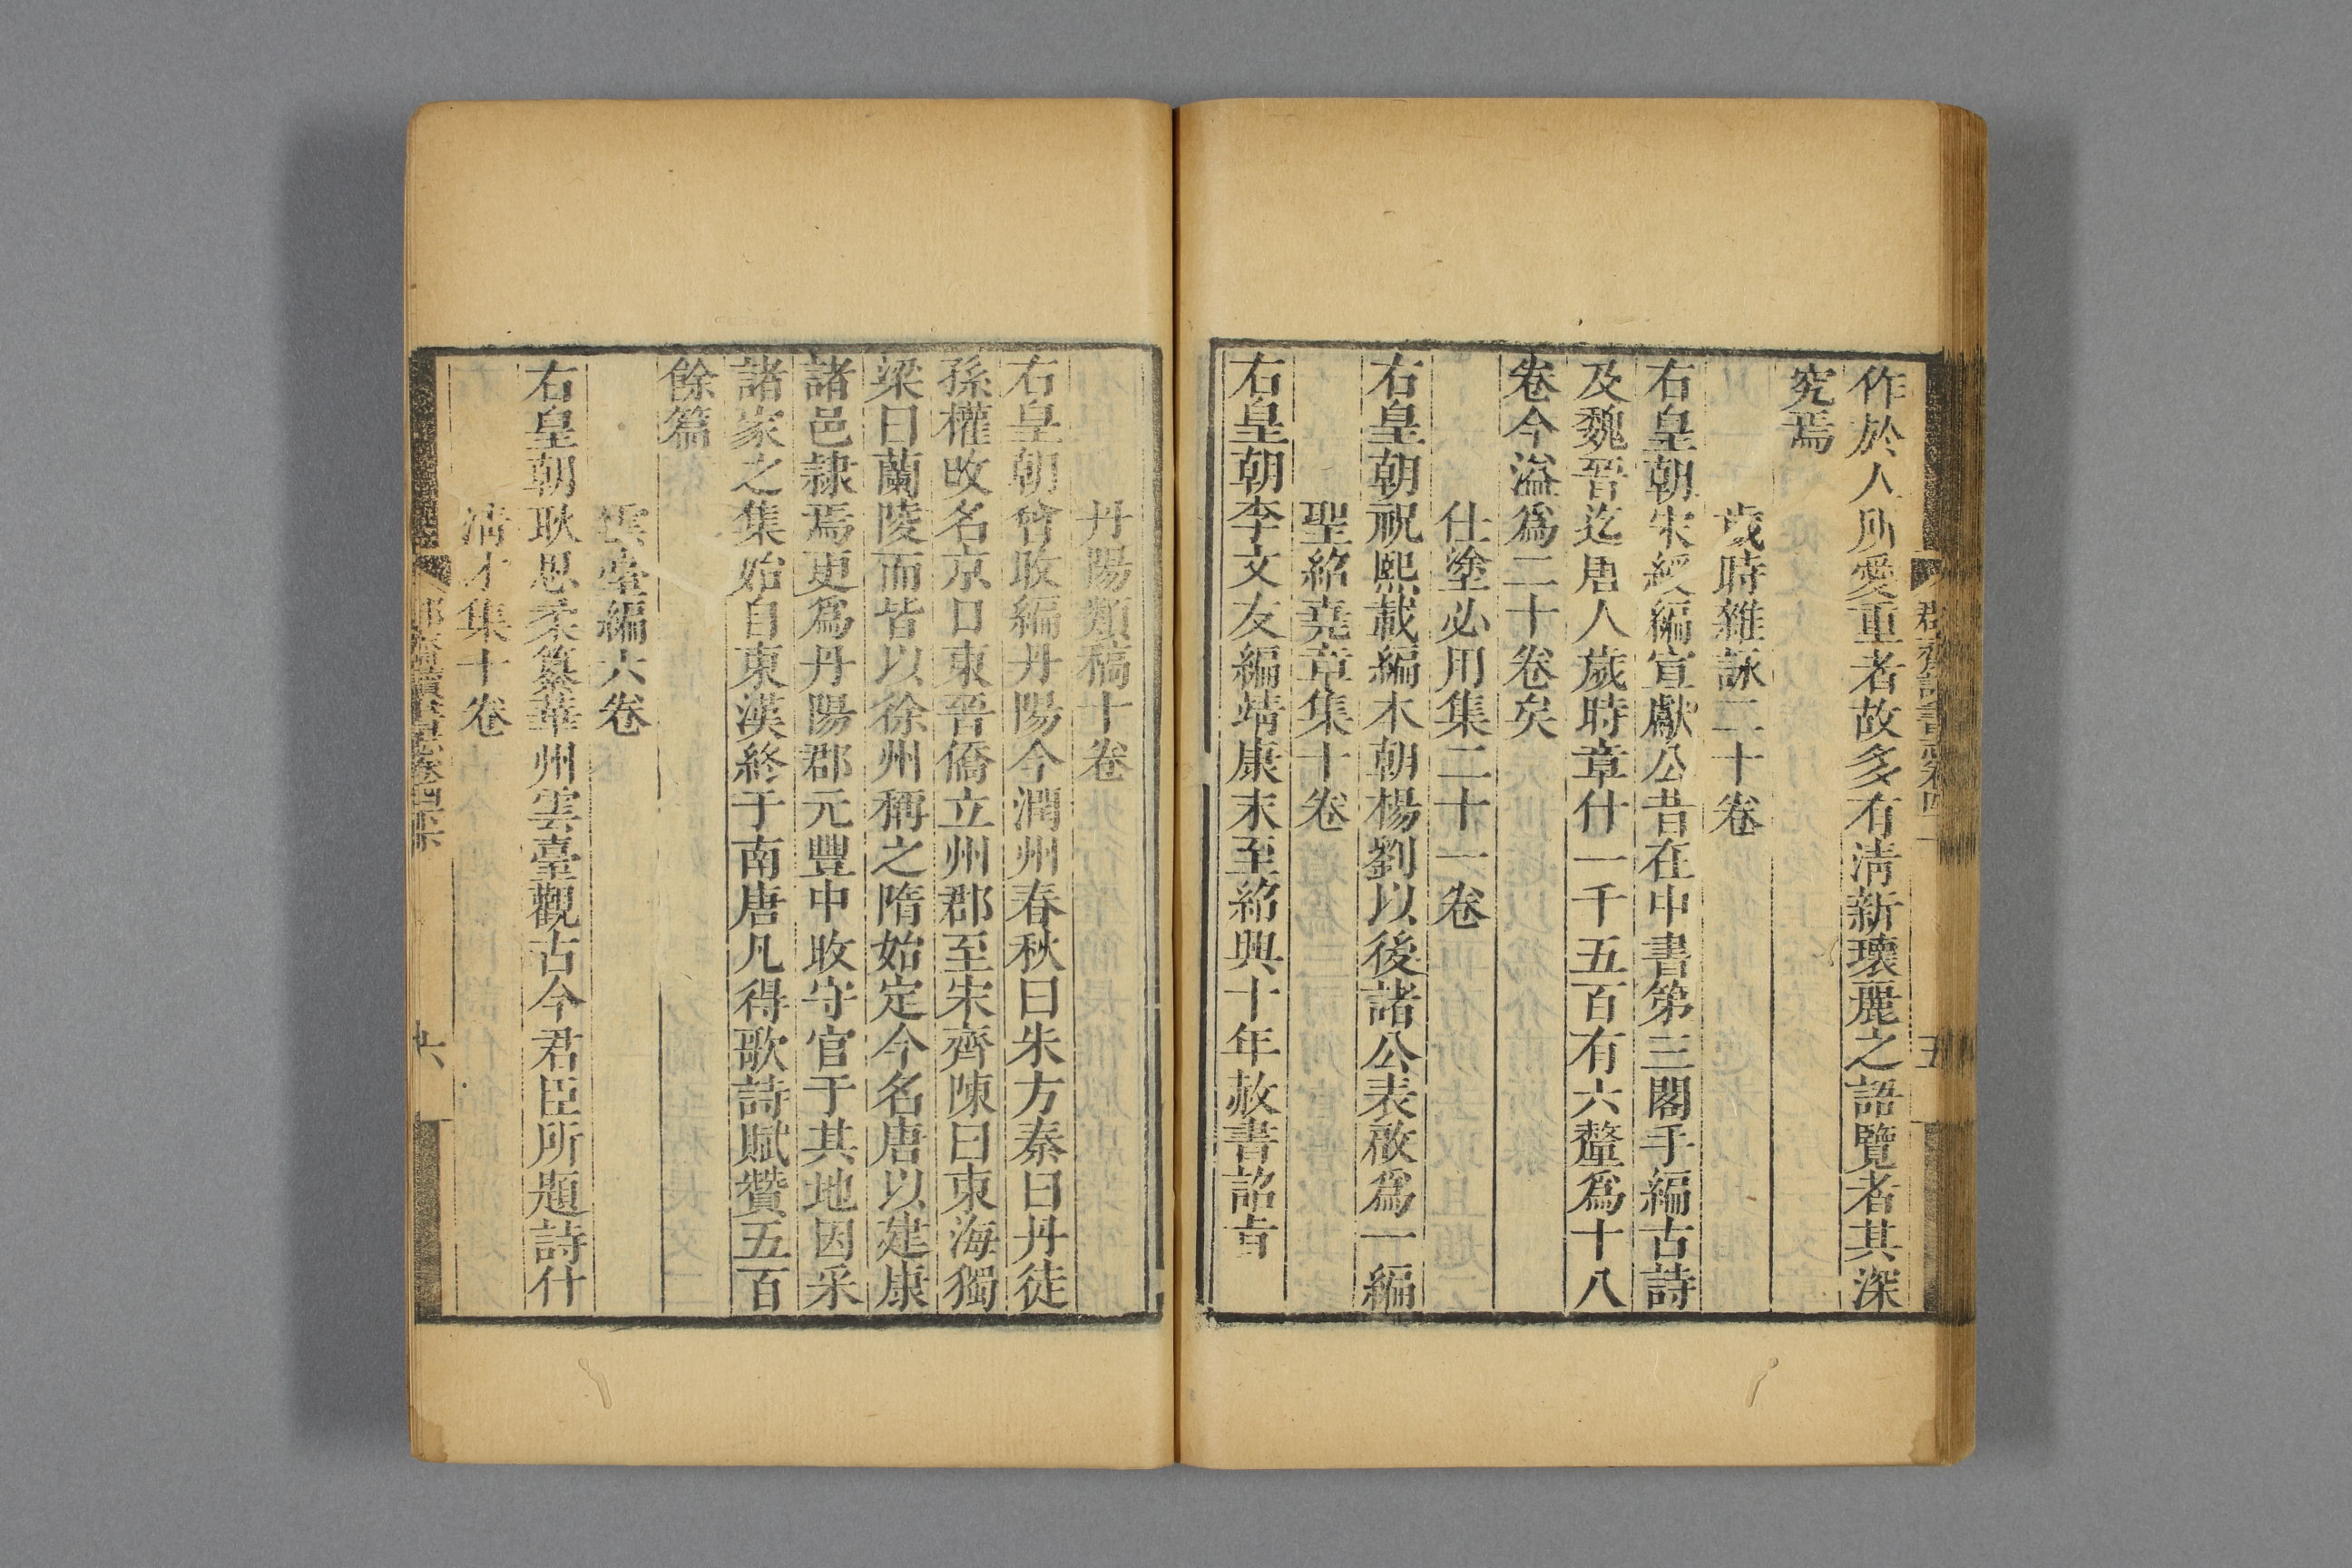 作於人所愛重者故多有淸新瓌麗之語覽者其深
究焉
歲時雜詠二十卷
右皇朝宋綬編宣獻公昔在中書第三閣手編古詩
及魏晉迄唐人歲時章什一千五百有六釐爲十八
卷今溢爲二十卷矣
仕塗必用集二十一卷
右皇朝祝熙載編本朝楊劉以後諸公表啟爲一編
聖紹堯章集十卷
右皇朝李文友編靖康末至紹興十年赦書詔旨
丹陽類稿十卷
右皇朝曾旼編丹陽今潤州春秋曰朱方秦曰丹徒
孫權改名京口東晉僑立州郡至宋齊陳曰東海獨
梁曰蘭陵而皆以徐州稱之隋始定今名唐以建康
諸邑隷焉更爲丹陽郡元豐中旼守官于其地因采
諸家之集始自東漢終于南唐凡得歌詩賦贊五百
餘篇
雲臺編六卷
右皇朝耿思柔纂華州雲臺觀古今君臣所題詩什
淸才集十卷
六